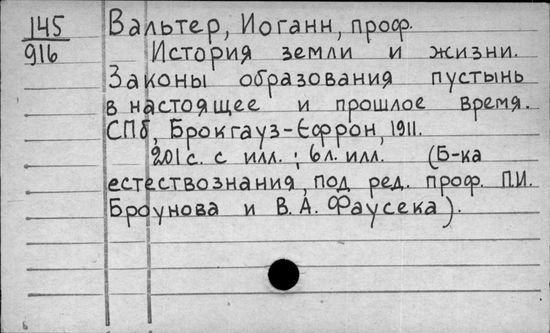 145
916
Вальтер, Иоганн, проф.
История земли и жизни.
Законы образования пустынь
в настоящее и прошлое время.
СПб, Брокгауз-Ефрон, 1911.
201 с. с илл.; 6 л. илл. (Б-ка
естествознания, под ред. проф. П.И.
Броунова и В.А. Фаусека).